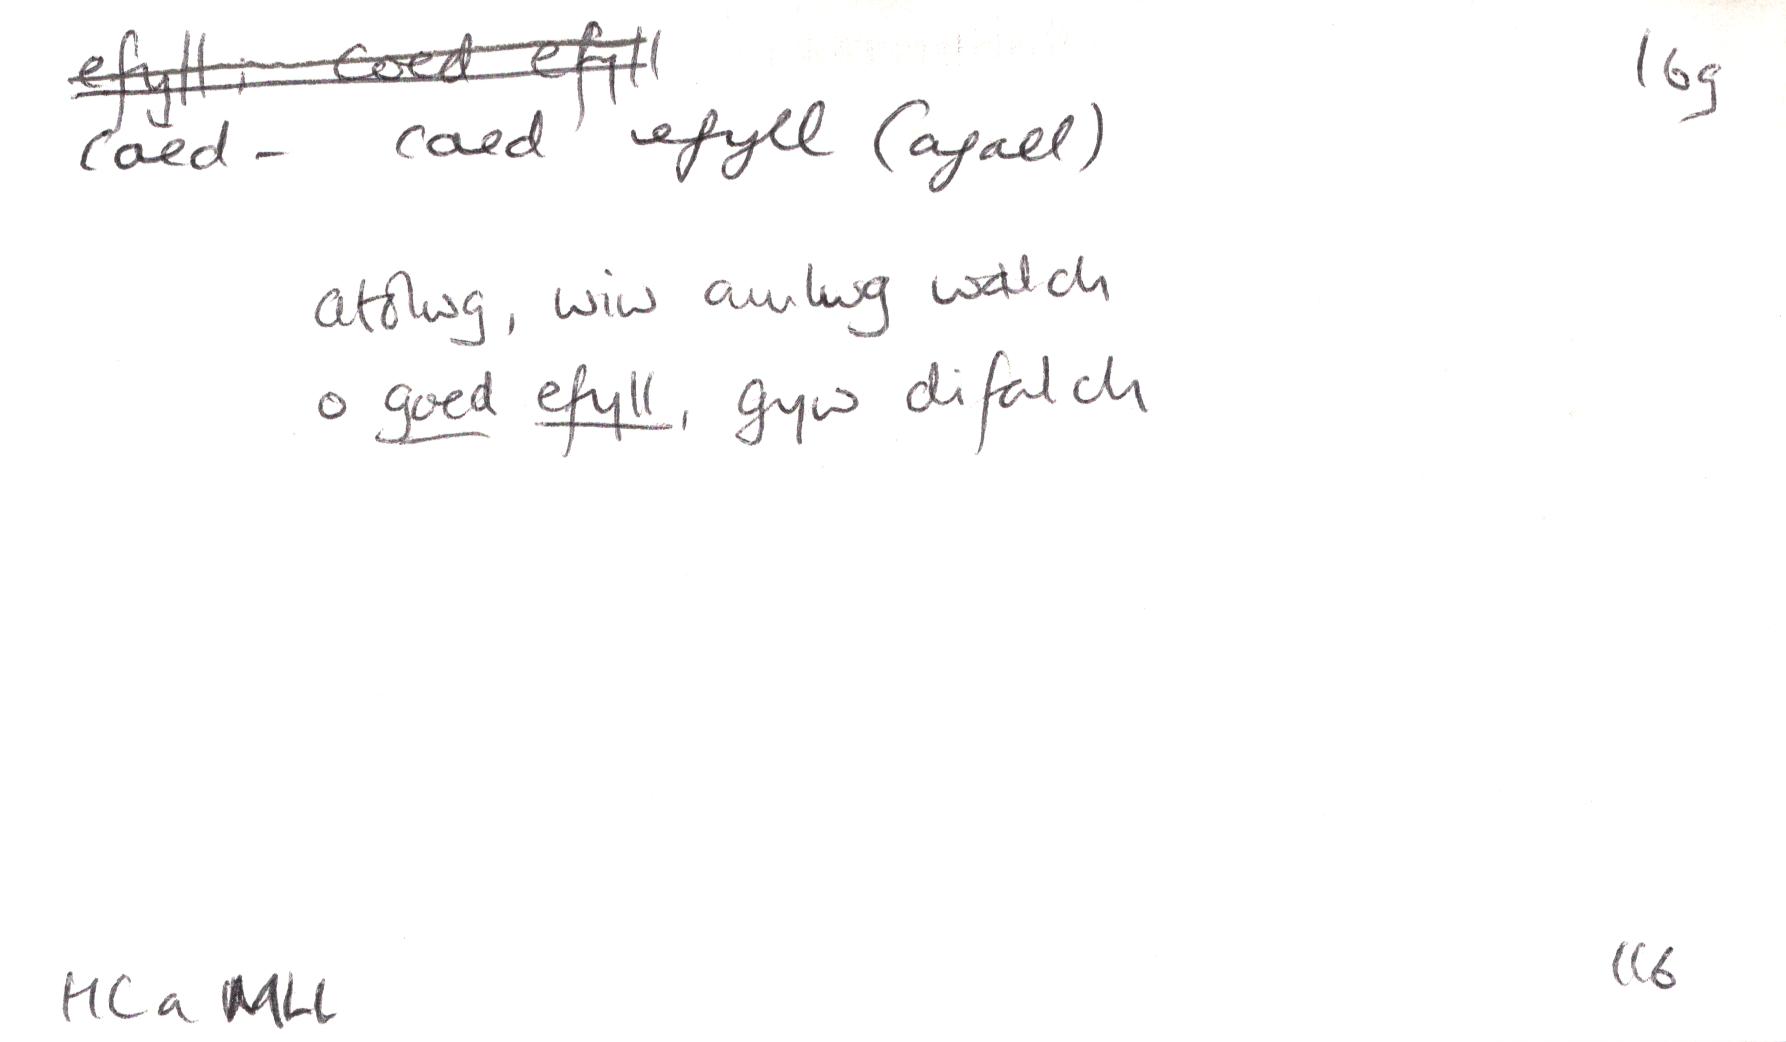 ~~efyll: coed efyll~~ 16g
coed - coed efyll (afael)
atolwg, wiw amlwg walch
o goed efyll, gyw difalch
HCa MLl 116